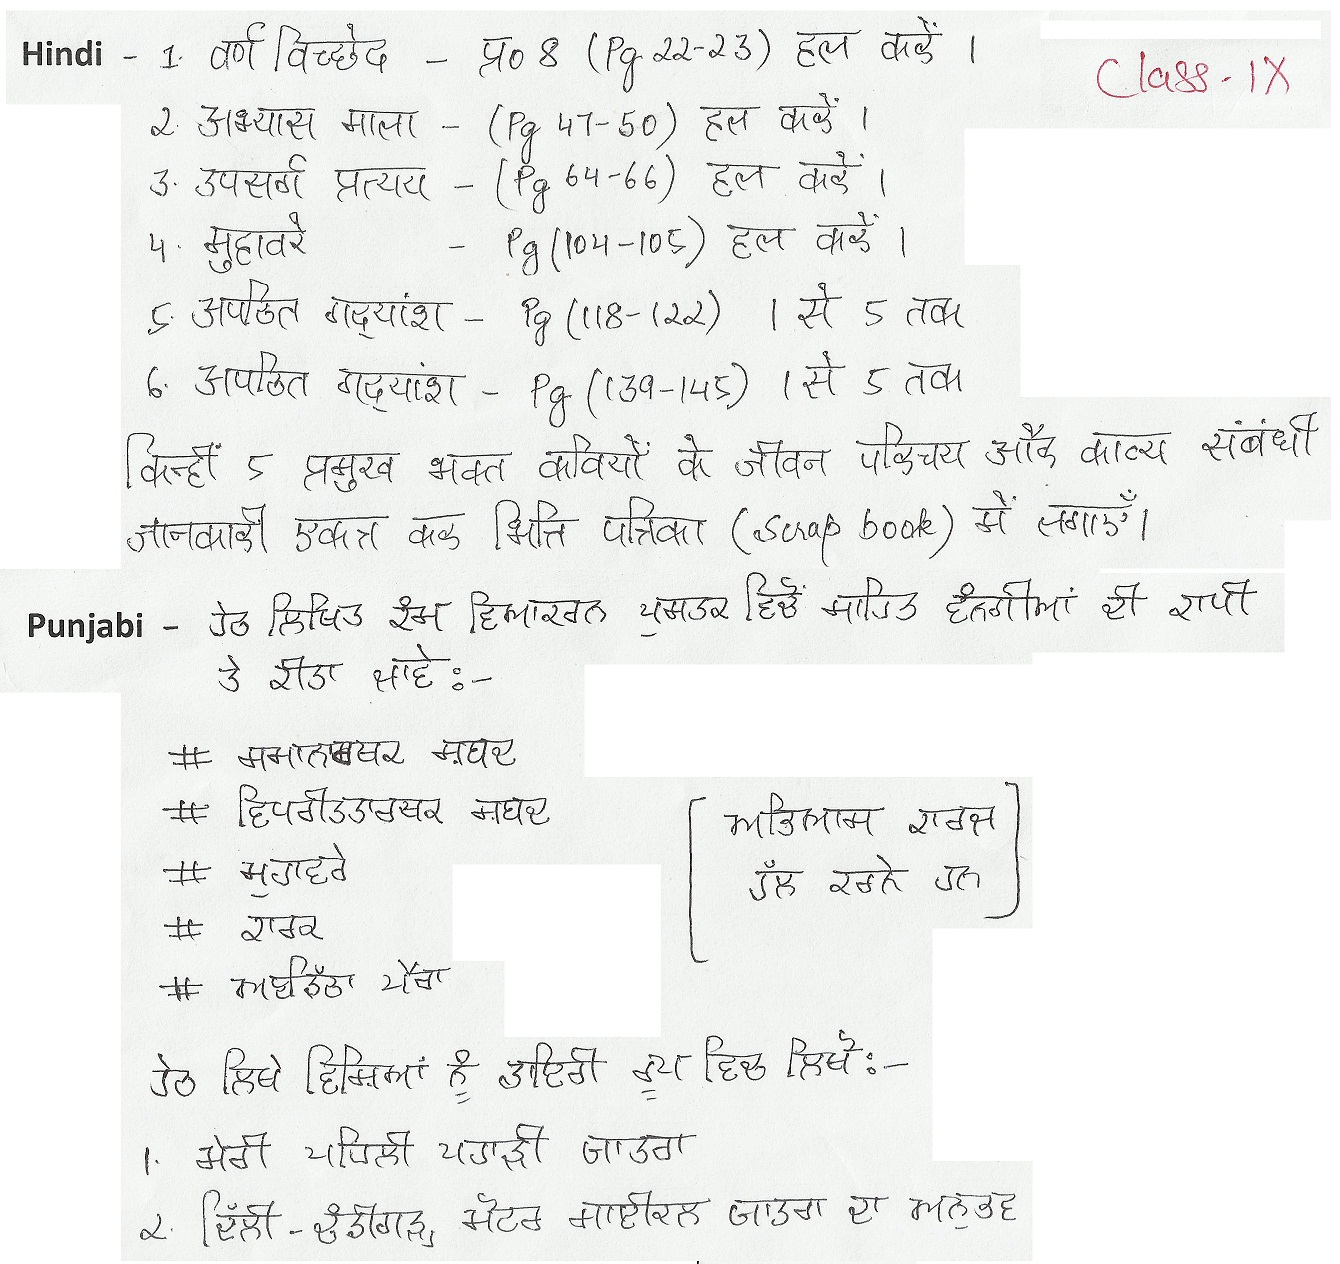 Hindi - 1. वर्ण विच्छेद - प्र० 8 (Pg 22-23) हल करें ।
Class - IX
2. अभ्यास माला - (Pg 47-50) हल करें ।
3. उपसर्ग प्रत्यय - (Pg 64-66) हल करें ।
4. मुहावरे - Pg (104-105) हल करें ।
5. अपठित गद्यांश - Pg (118-122) 1 से 5 तक
6. अपठित गद्यांश - Pg (139-145) 1 से 5 तक
किन्हीं 5 प्रमुख भक्त कवियों के जीवन परिचय और काव्य संबंधी
जानकारी एकत्र कर भित्ति पत्रिका (Scrap book) में लगाएँ।
Punjabi - ਹੇਠ ਲਿਖਿਤ ਕੰਮ ਵਿਆਕਰਨ ਪੁਸਤਕ ਵਿਚੋਂ ਸਾਹਿਤ ਵੰਨਗੀਆਂ ਦੀ ਕਾਪੀ
ਤੇ ਕੀਤਾ ਜਾਵੇ :-
# ਸਮਾਨਾਰਥਕ ਸ਼ਬਦ
# ਵਿਪਰੀਤਾਰਥਕ ਸ਼ਬਦ
# ਮੁਹਾਵਰੇ
# ਕਾਰਕ
# ਅਣਡਿੱਠਾ ਪੈਰਾ
[ ਅਭਿਆਸ ਕਾਰਜ
ਹੱਲ ਕਰਨੇ ਹਨ ]
ਹੇਠ ਲਿਖੇ ਵਿਸ਼ਿਆਂ ਨੂੰ ਡਾਇਰੀ ਰੂਪ ਵਿਚ ਲਿਖੋ :-
1. ਮੇਰੀ ਪਹਿਲੀ ਪਹਾੜੀ ਯਾਤਰਾ
2. ਦਿੱਲੀ - ਚੰਡੀਗੜ੍ਹ, ਮੋਟਰ ਸਾਈਕਲ ਯਾਤਰਾ ਦਾ ਅਨੁਭਵ